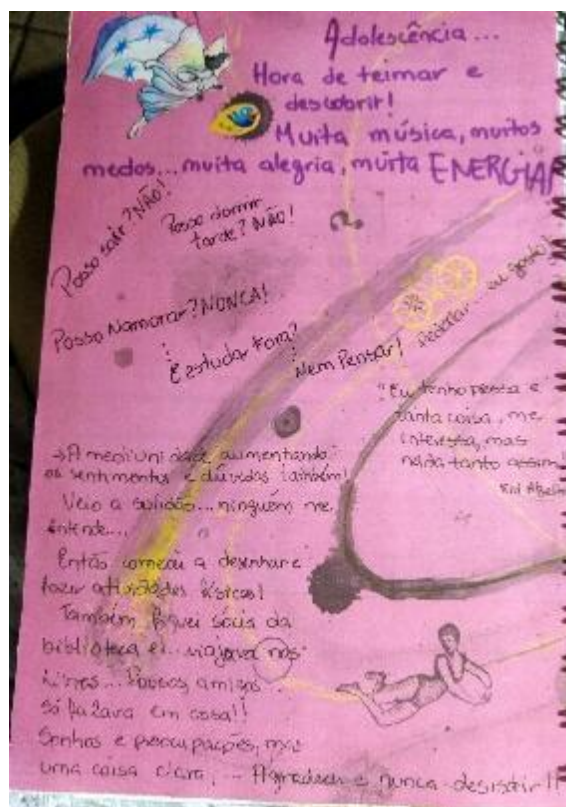 Adolescência...
Hora de teimar e
descobrir!
Muita música, muitos
medos... muita alegria, muita ENERGIA
Posso sair? NÃO!
Posso dormir
tarde? NÃO!
Posso Namorar? NUNCA!
E estudar fora?
Nem Pensar!
Pedalar eu gosto!
"Eu tenho pressa e
tanta coisa me
interessa, mas
nada tanto assim"
Kid
os sentimentos e dúvidas também!
Veio a solidão... ninguém me
entende...
Então comecei a desenhar e
fazer atividades físicas!
Também fiquei sócia da
biblioteca e... viajava nos
Livros... Poucos amigos
só ficava em casa!!
Sonhos e preocupações, mas
uma coisa clara, ... Agradecer e nunca desistir!!